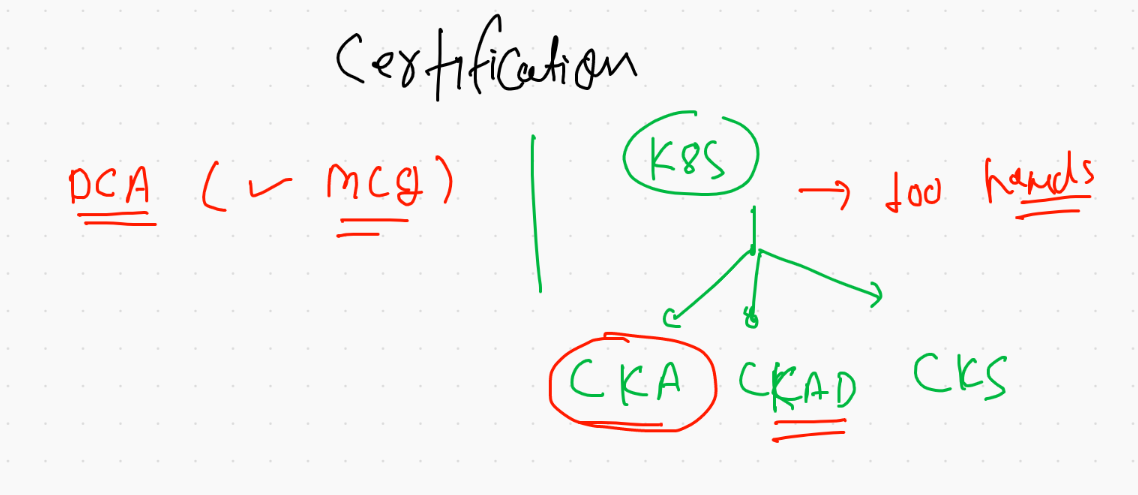 Certification
DCA (✓ MCQ)
K8S → 100 hands
CKA CKAD CKS